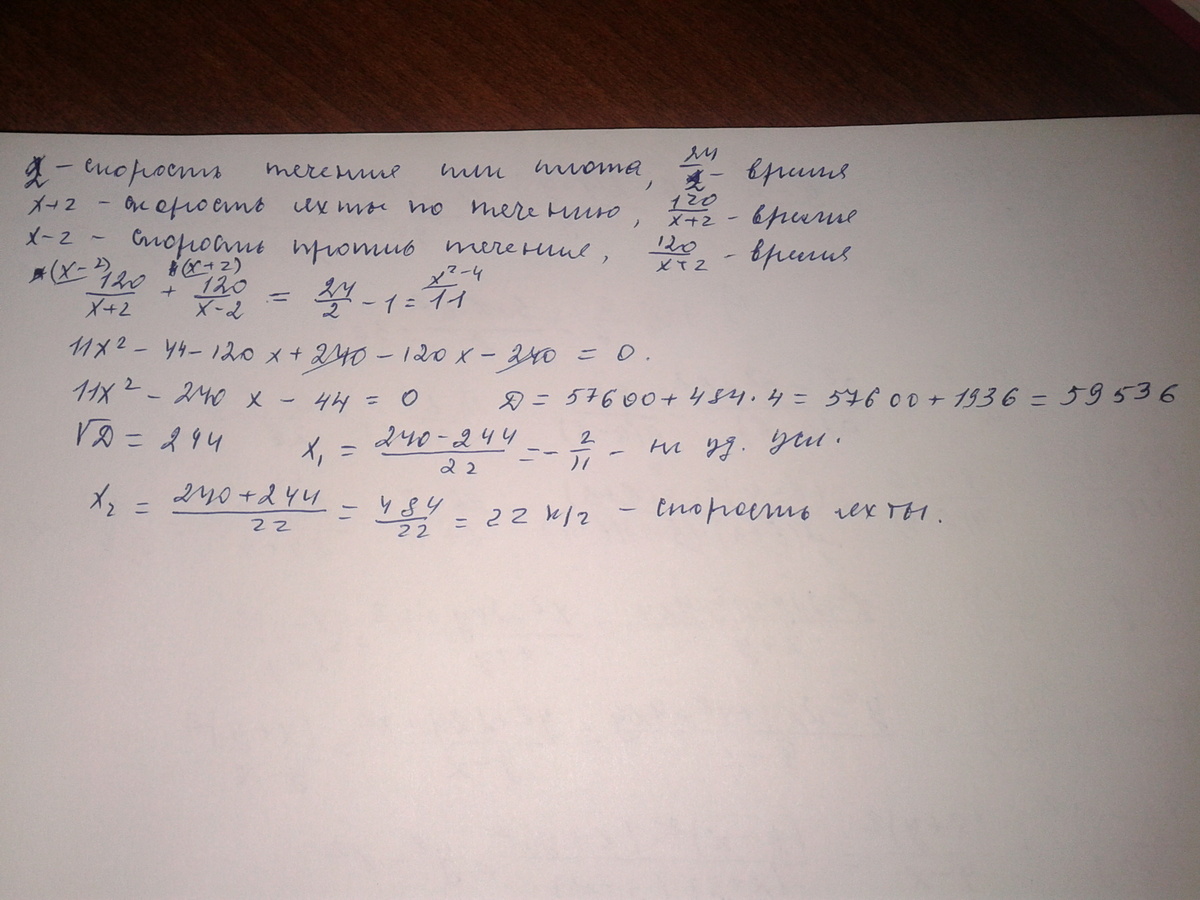 2 – скорость течение или плота, 24/2 – время
x+2 – скорость яхты по течению, 120/x+2 – время
x-2 – скорость против течение, 120/x-2 – время
(x-2) (x+2) x²-4
120/x+2 + 120/x-2 = 24/2 - 1 = 11
11x² - 44 - 120x + 240 - 120x - 240 = 0.
11x² - 240x - 44 = 0 D = 57600 + 484·4 = 57600 + 1936 = 59536
√D = 244 x₁ = 240-244/22 = -2/11 – не уд. усл.
x₂ = 240+244/22 = 484/22 = 22 к/г – скорость яхты.